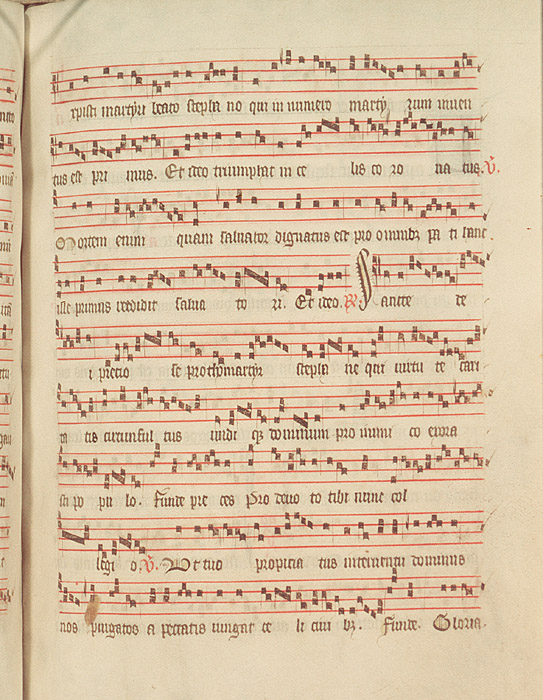 xpisti martyri beato stepha no qui in numero martyrum inuen
tus est pri mus. Et ideo triumphat in ce lis co ro na tus. V.
Mortem enim quam saluator dignatus est pro omnibz pa ti hanc
ille primus reddidit salua to ri. Et ideo. R. Sancte de
i precio se prothomartyr stepha ne qui uirtu te cari
ta tis circumful tus undi qz dominum pro inimi co exora
sti po pu lo. Funde pre ces Pro deuo to tibi nunc col
legi o. V. Vt tuo propicia tus interuentu dominus
nos purgatos a peccatis iungat ce li ciui bz. Funde. Gloria.